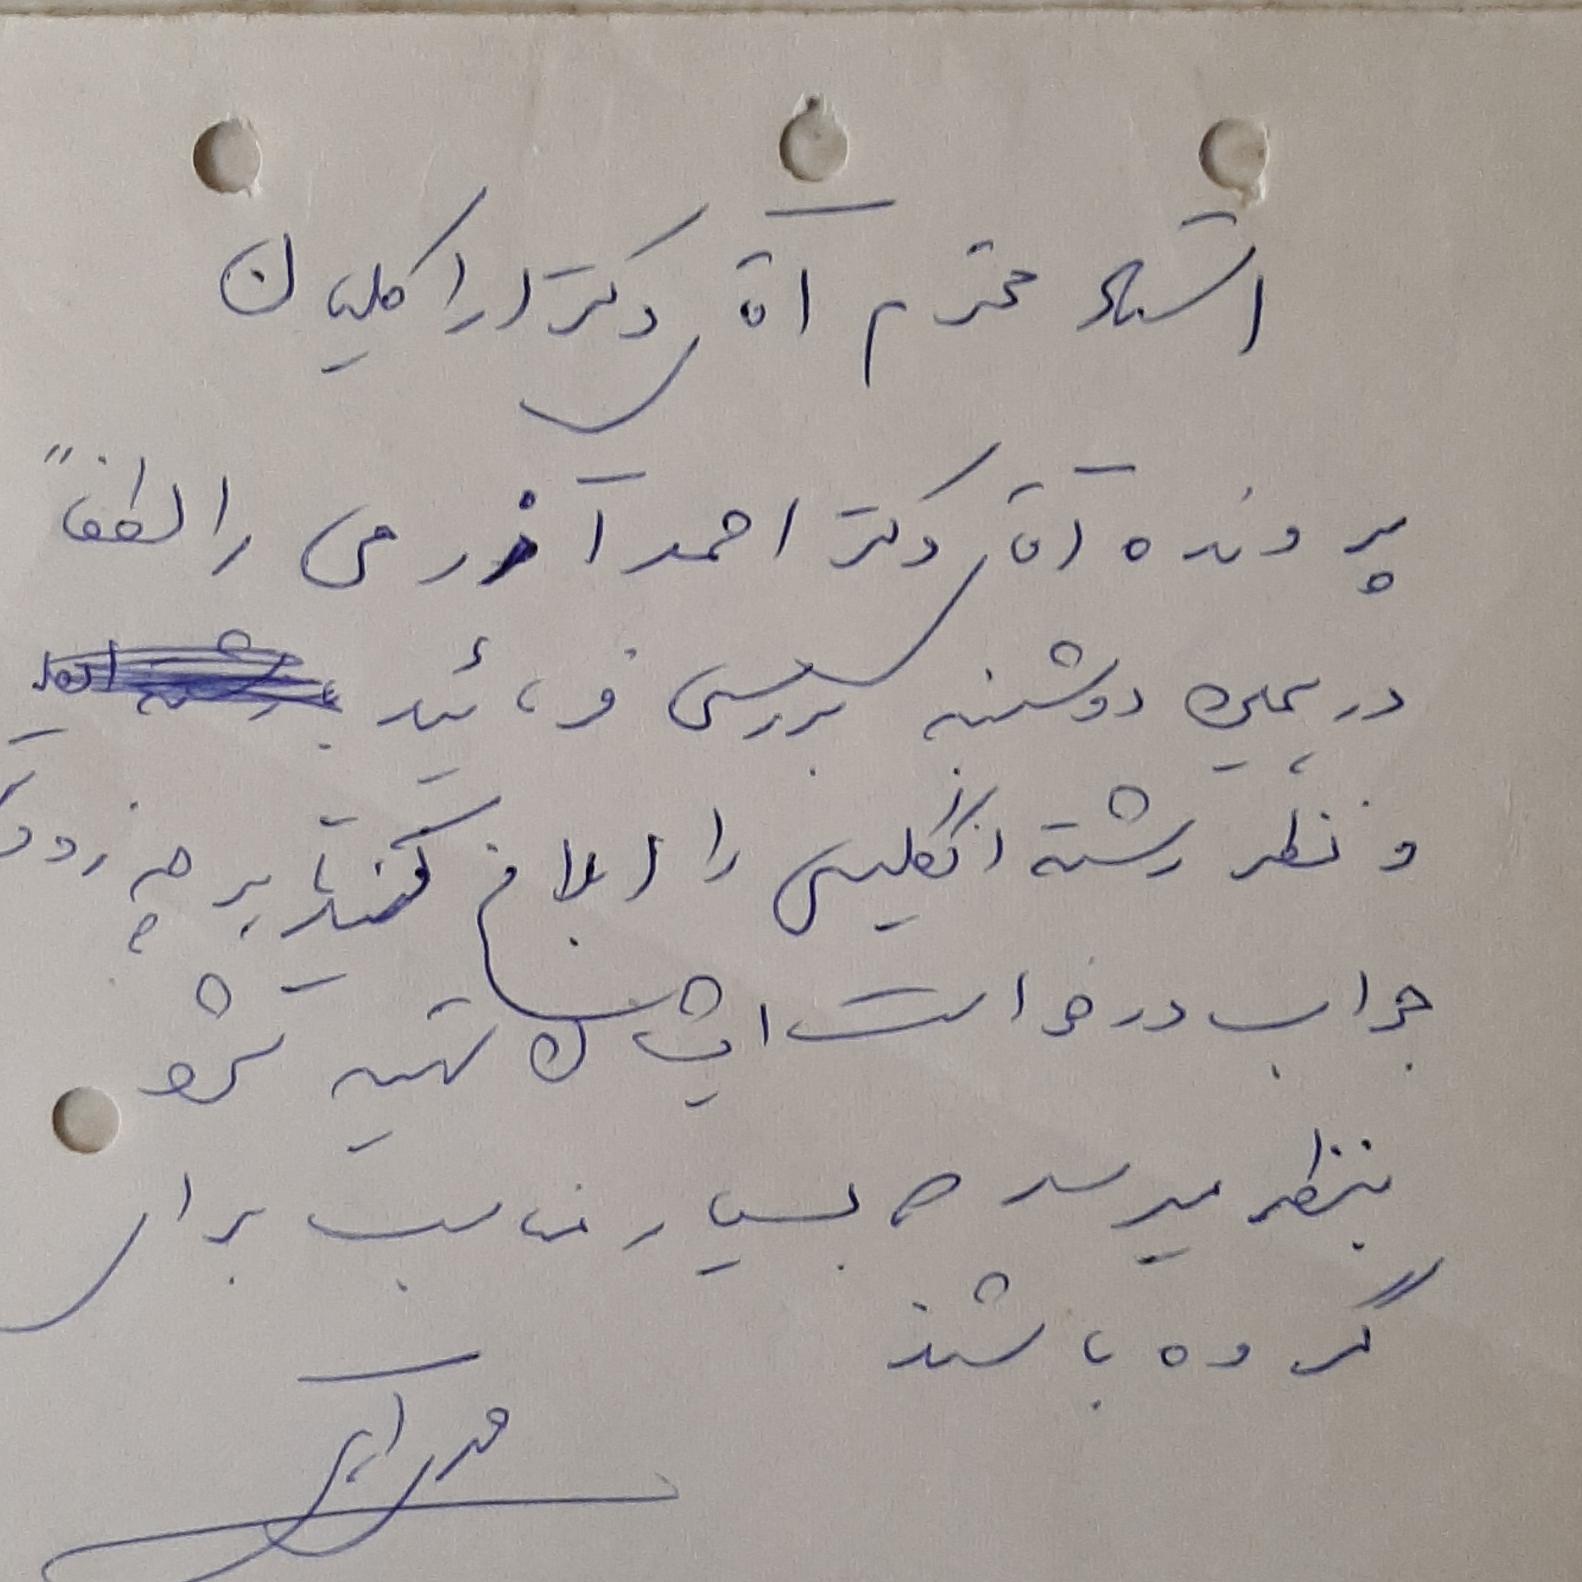 استاد محترم آقای دکتر اراکلیان
پرونده آقای دکتر احمد آذرمی را لطفاً
در جلسه دوشنبه بررسی فرمائید
و نظر رشته انگلیسی را ابلاغ کنید تا هر چه زودتر
جواب درخواست ایشان تهیه شود
بنظر میرسد که بسیار مناسب برای
گروه باشند